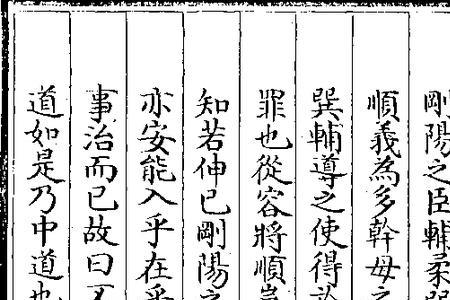 剛陽之臣輔柔弱
順義為多幹母之
巽輔導之使得於
罪也從容將順豈
知若伸已剛陽之
亦安能入乎在乎
事治而已故曰不
道如是乃中道也